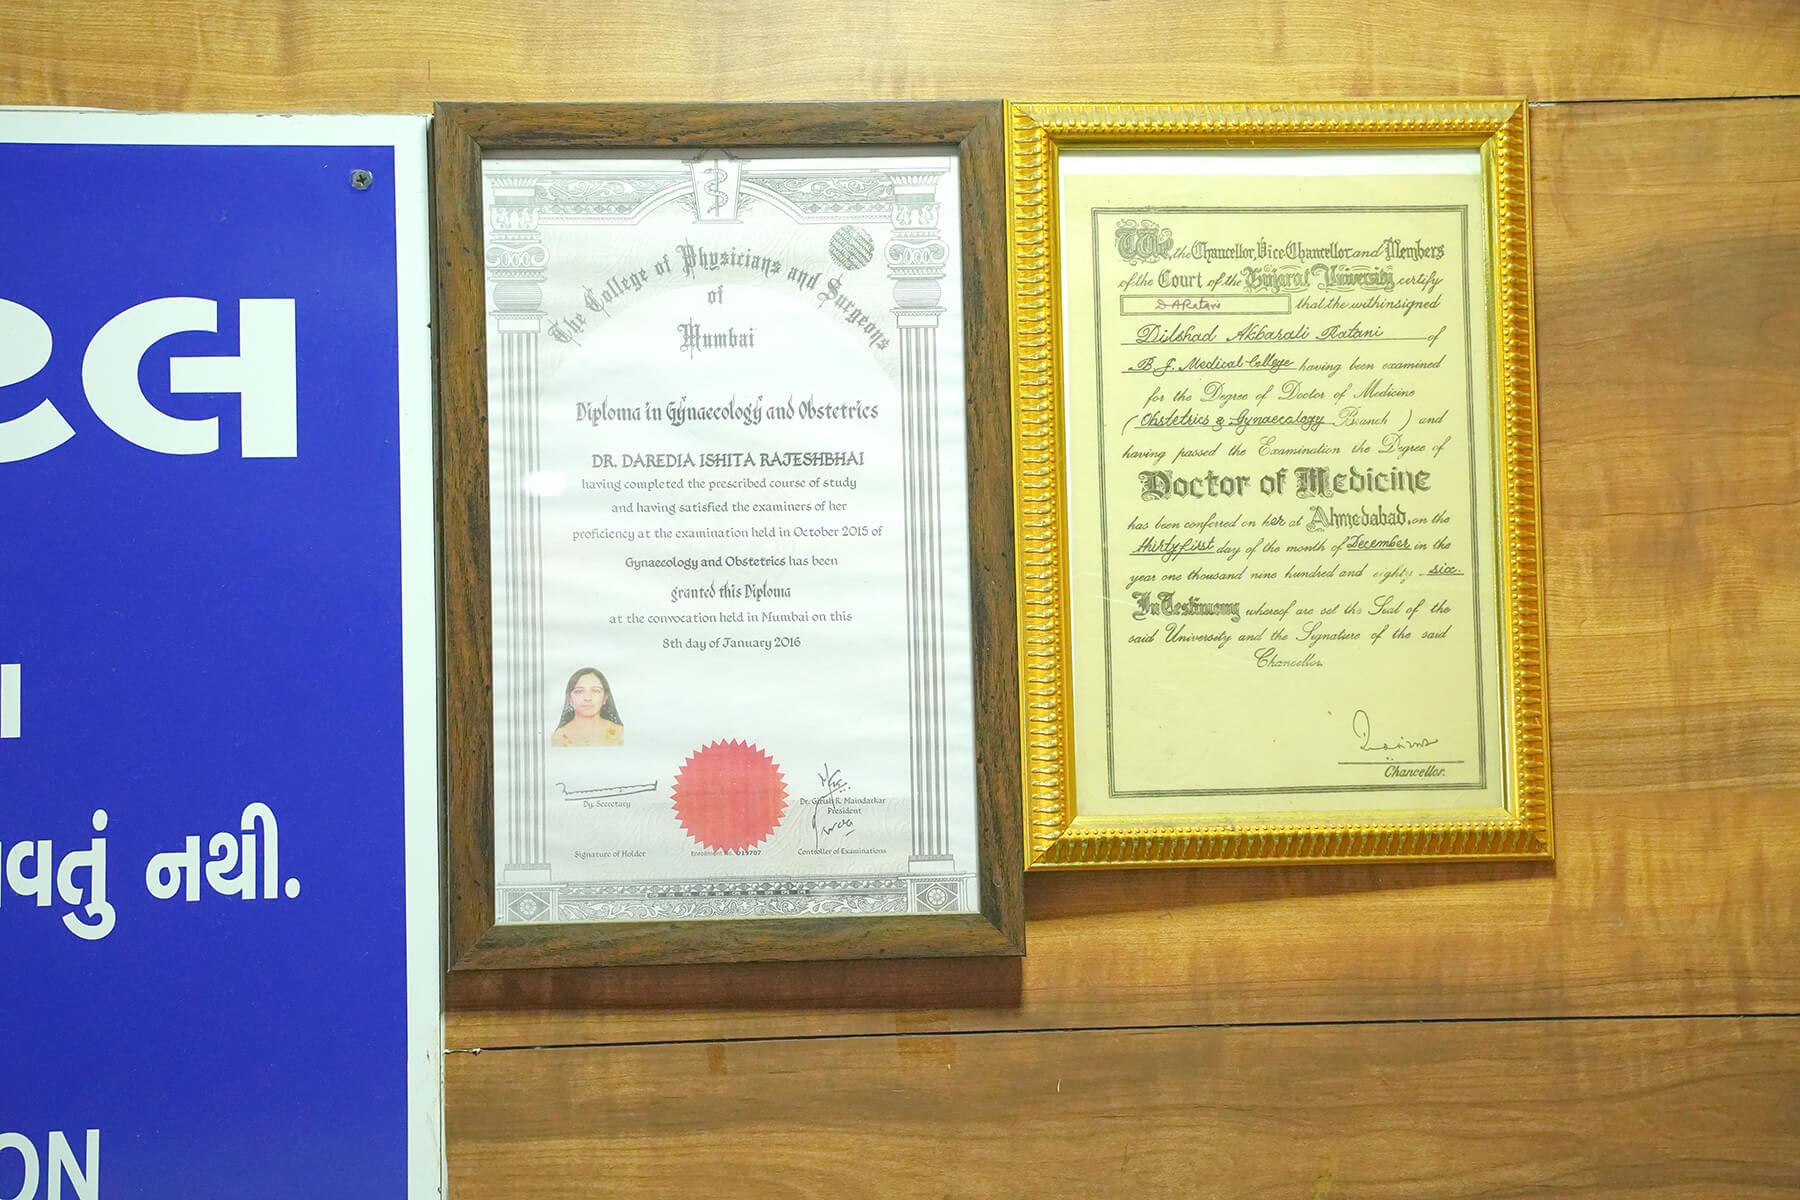 રલ
વતું નથી.
ON
The College of Physicians and Surgeons
of
Mumbai
Diploma in Gynaecology and Obstetrics
DR. DAREDIA ISHITA RAJESHBHAI
having completed the prescribed course of study
and having satisfied the examiners of her
proficiency at the examination held in October 2015 of
Gynaecology and Obstetrics has been
granted this Diploma
at the convocation held in Mumbai on this
8th day of January 2016
Dy. Secretary
Dr. Girish R. Maindarkar
President
Signature of Holder
Enrolment No. 019707
Controller of Examinations
We, the Chancellor, Vice-Chancellor and Members
of the Court of the Gujarat University certify
D A Ratani that the withinsigned
Dilshad Akbarali Ratani of
B. J. Medical College having been examined
for the Degree of Doctor of Medicine
(Obstetrics & Gynaecology Branch) and
having passed the Examination the Degree of
Doctor of Medicine
has been conferred on her at Ahmedabad, on the
thirty first day of the month of December in the
year one thousand nine hundred and eighty six.
In Testimony whereof are set the Seal of the
said University and the Signature of the said
Chancellor.
Chancellor.